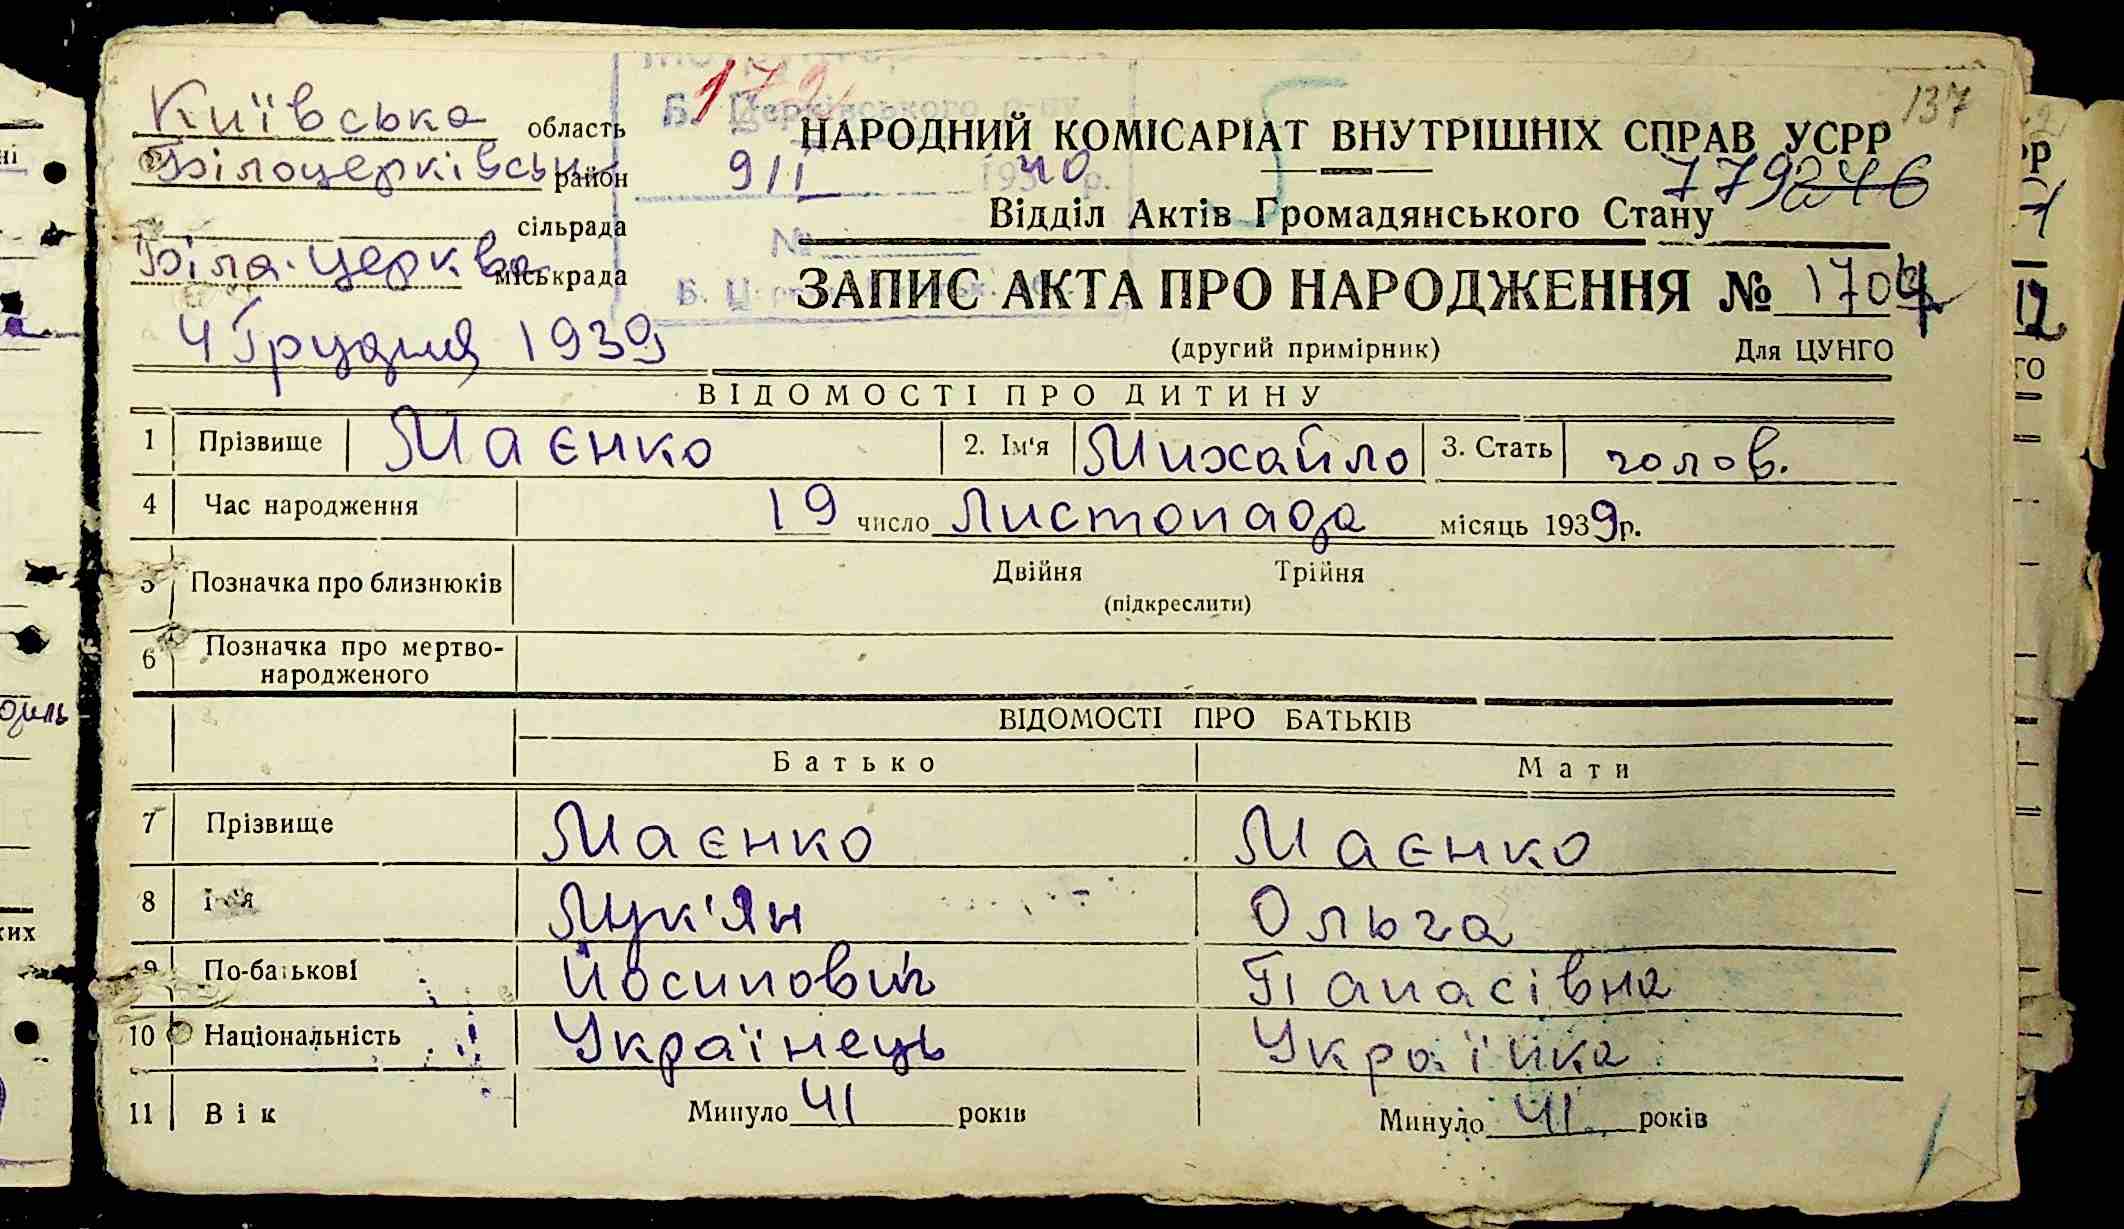 137
172
Київська область
Б. Церківського р-ну
НАРОДНИЙ КОМІСАРІАТ ВНУТРІШНІХ СПРАВ УСРР
Білоцерківськ район
9/I 1940 р.
779 246
Відділ Актів Громадянського Стану
сільрада
№
Біла-Церква міськрада
Б. Ц
ЗАПИС АКТА ПРО НАРОДЖЕННЯ № 1704
4 Грудня 1939
(другий примірник) Для ЦУНГО
ВІДОМОСТІ ПРО ДИТИНУ
1 Прізвище Маєнко 2. Ім'я Михайло 3. Стать чолов.
4 Час народження 19 число Листопада місяць 1939 р.
5 Позначка про близнюків Двійня Трійня
(підкреслити)
6 Позначка про мертво-
народженого
ВІДОМОСТІ ПРО БАТЬКІВ
Батько Мати
7 Прізвище Маєнко Маєнко
8 Ім'я Лук'ян Ольга
9 По-батькові Йосипович Панасівна
10 Національність Українець Українка
11 Вік Минуло 41 років Минуло 41 років